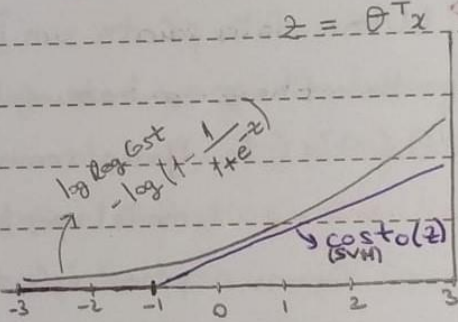 z = θᵀx
log Reg Cost
-log(1 - 1/1+e^-z)
cost₀(z)
(SVM)
-3 -2 -1 0 1 2 3